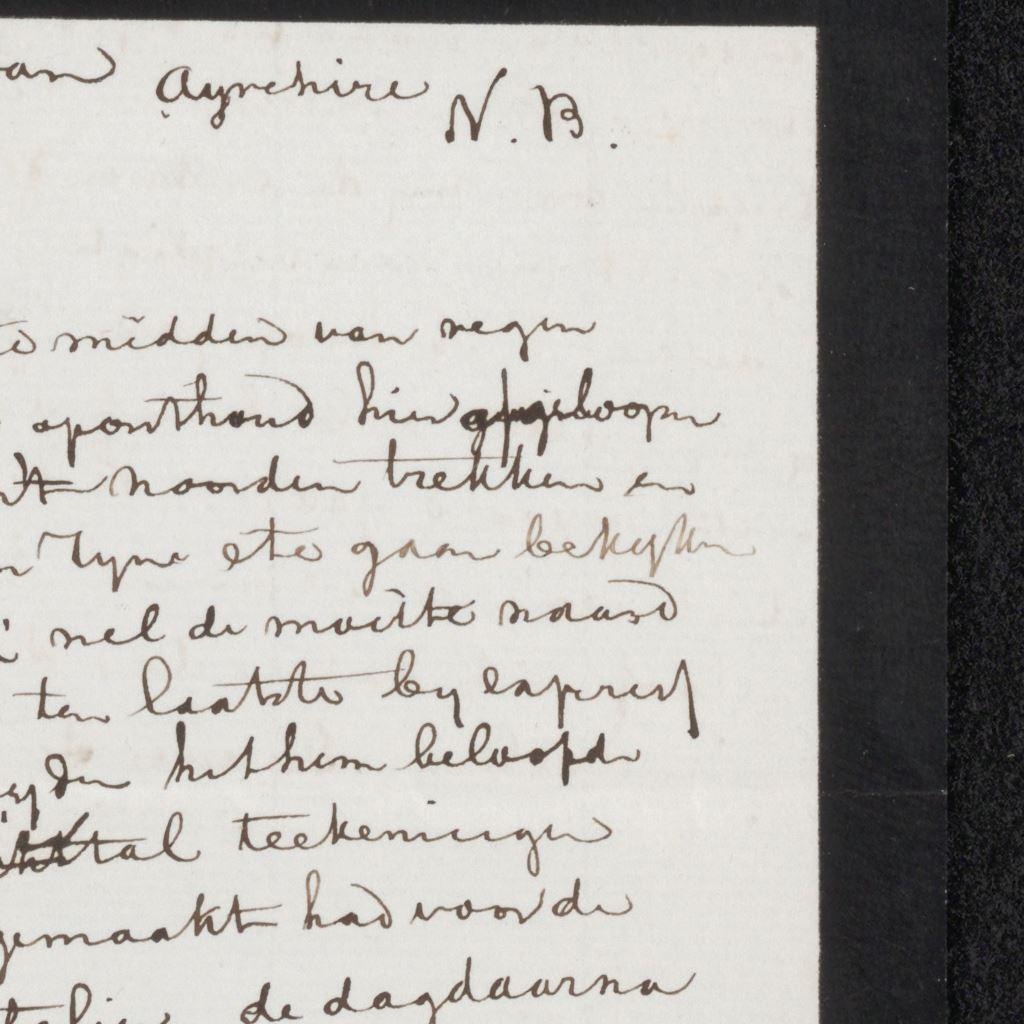 Ayrshire N.B.
te midden van regen
oponthoud hier geloopen
't noorden trekken en
Tyne etc gaan bekyken
wel de moeite waard
ten laatste by expres
het hem beloofde
tal teekeningen
gemaakt had voor de
de dag daarna